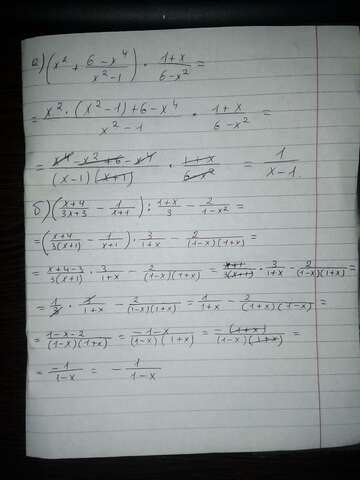 а) (x² + (6 - x⁴)/(x² - 1)) · (1+x)/(6 - x²) =
= (x² · (x² - 1) + 6 - x⁴)/(x² - 1) · (1+x)/(6 - x²) =
= (x⁴ - x² + 6 - x⁴)/((x-1)(x+1)) · (1+x)/(6 - x²) = 1/(x-1)
б) ((x+4)/(3x+3) - 1/(x+1)) : (1+x)/3 - 2/(1-x²) =
= ((x+4)/(3(x+1)) - 1/(x+1)) · 3/(1+x) - 2/((1-x)(1+x)) =
= (x+4-3)/(3(x+1)) · 3/(1+x) - 2/((1-x)(1+x)) = (x+1)/(3(x+1)) · 3/(1+x) - 2/((1-x)(1+x)) =
= 1/3 · 3/(1+x) - 2/((1-x)(1+x)) = 1/(1+x) - 2/((1+x)(1-x)) =
= (1-x-2)/((1-x)(1+x)) = (-1-x)/((1-x)(1+x)) = -(1+x)/((1-x)(1+x)) =
= -1/(1-x) = - 1/(1-x)